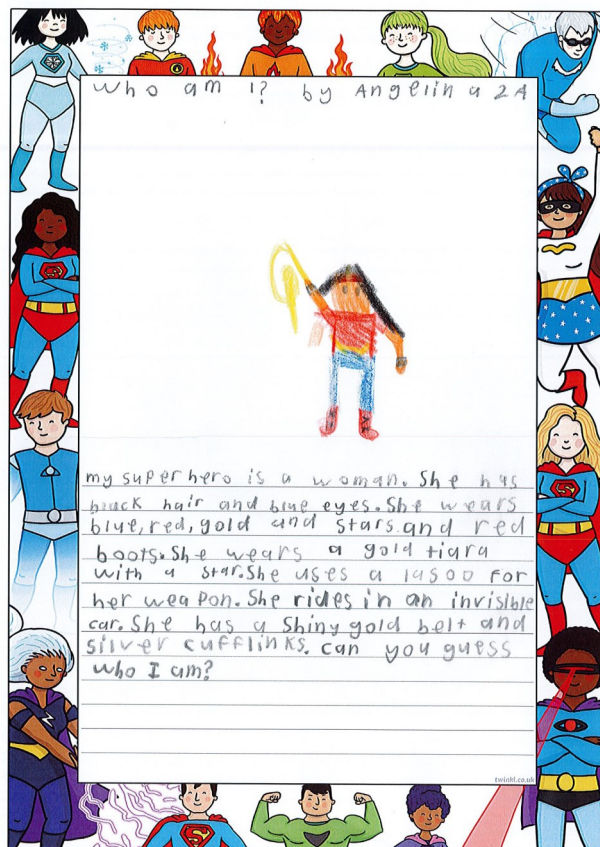 Who am I? by Angelina 2A
my superhero is a woman. She has
black hair and blue eyes. She wears
blue, red, gold and stars and red
boots. She wears a gold tiara
with a star. She uses a lasoo for
her weapon. She rides in an invislble
car. She has a Shiny gold belt and
silver cufflinks. can you guess
who I am?
twinkl.co.uk